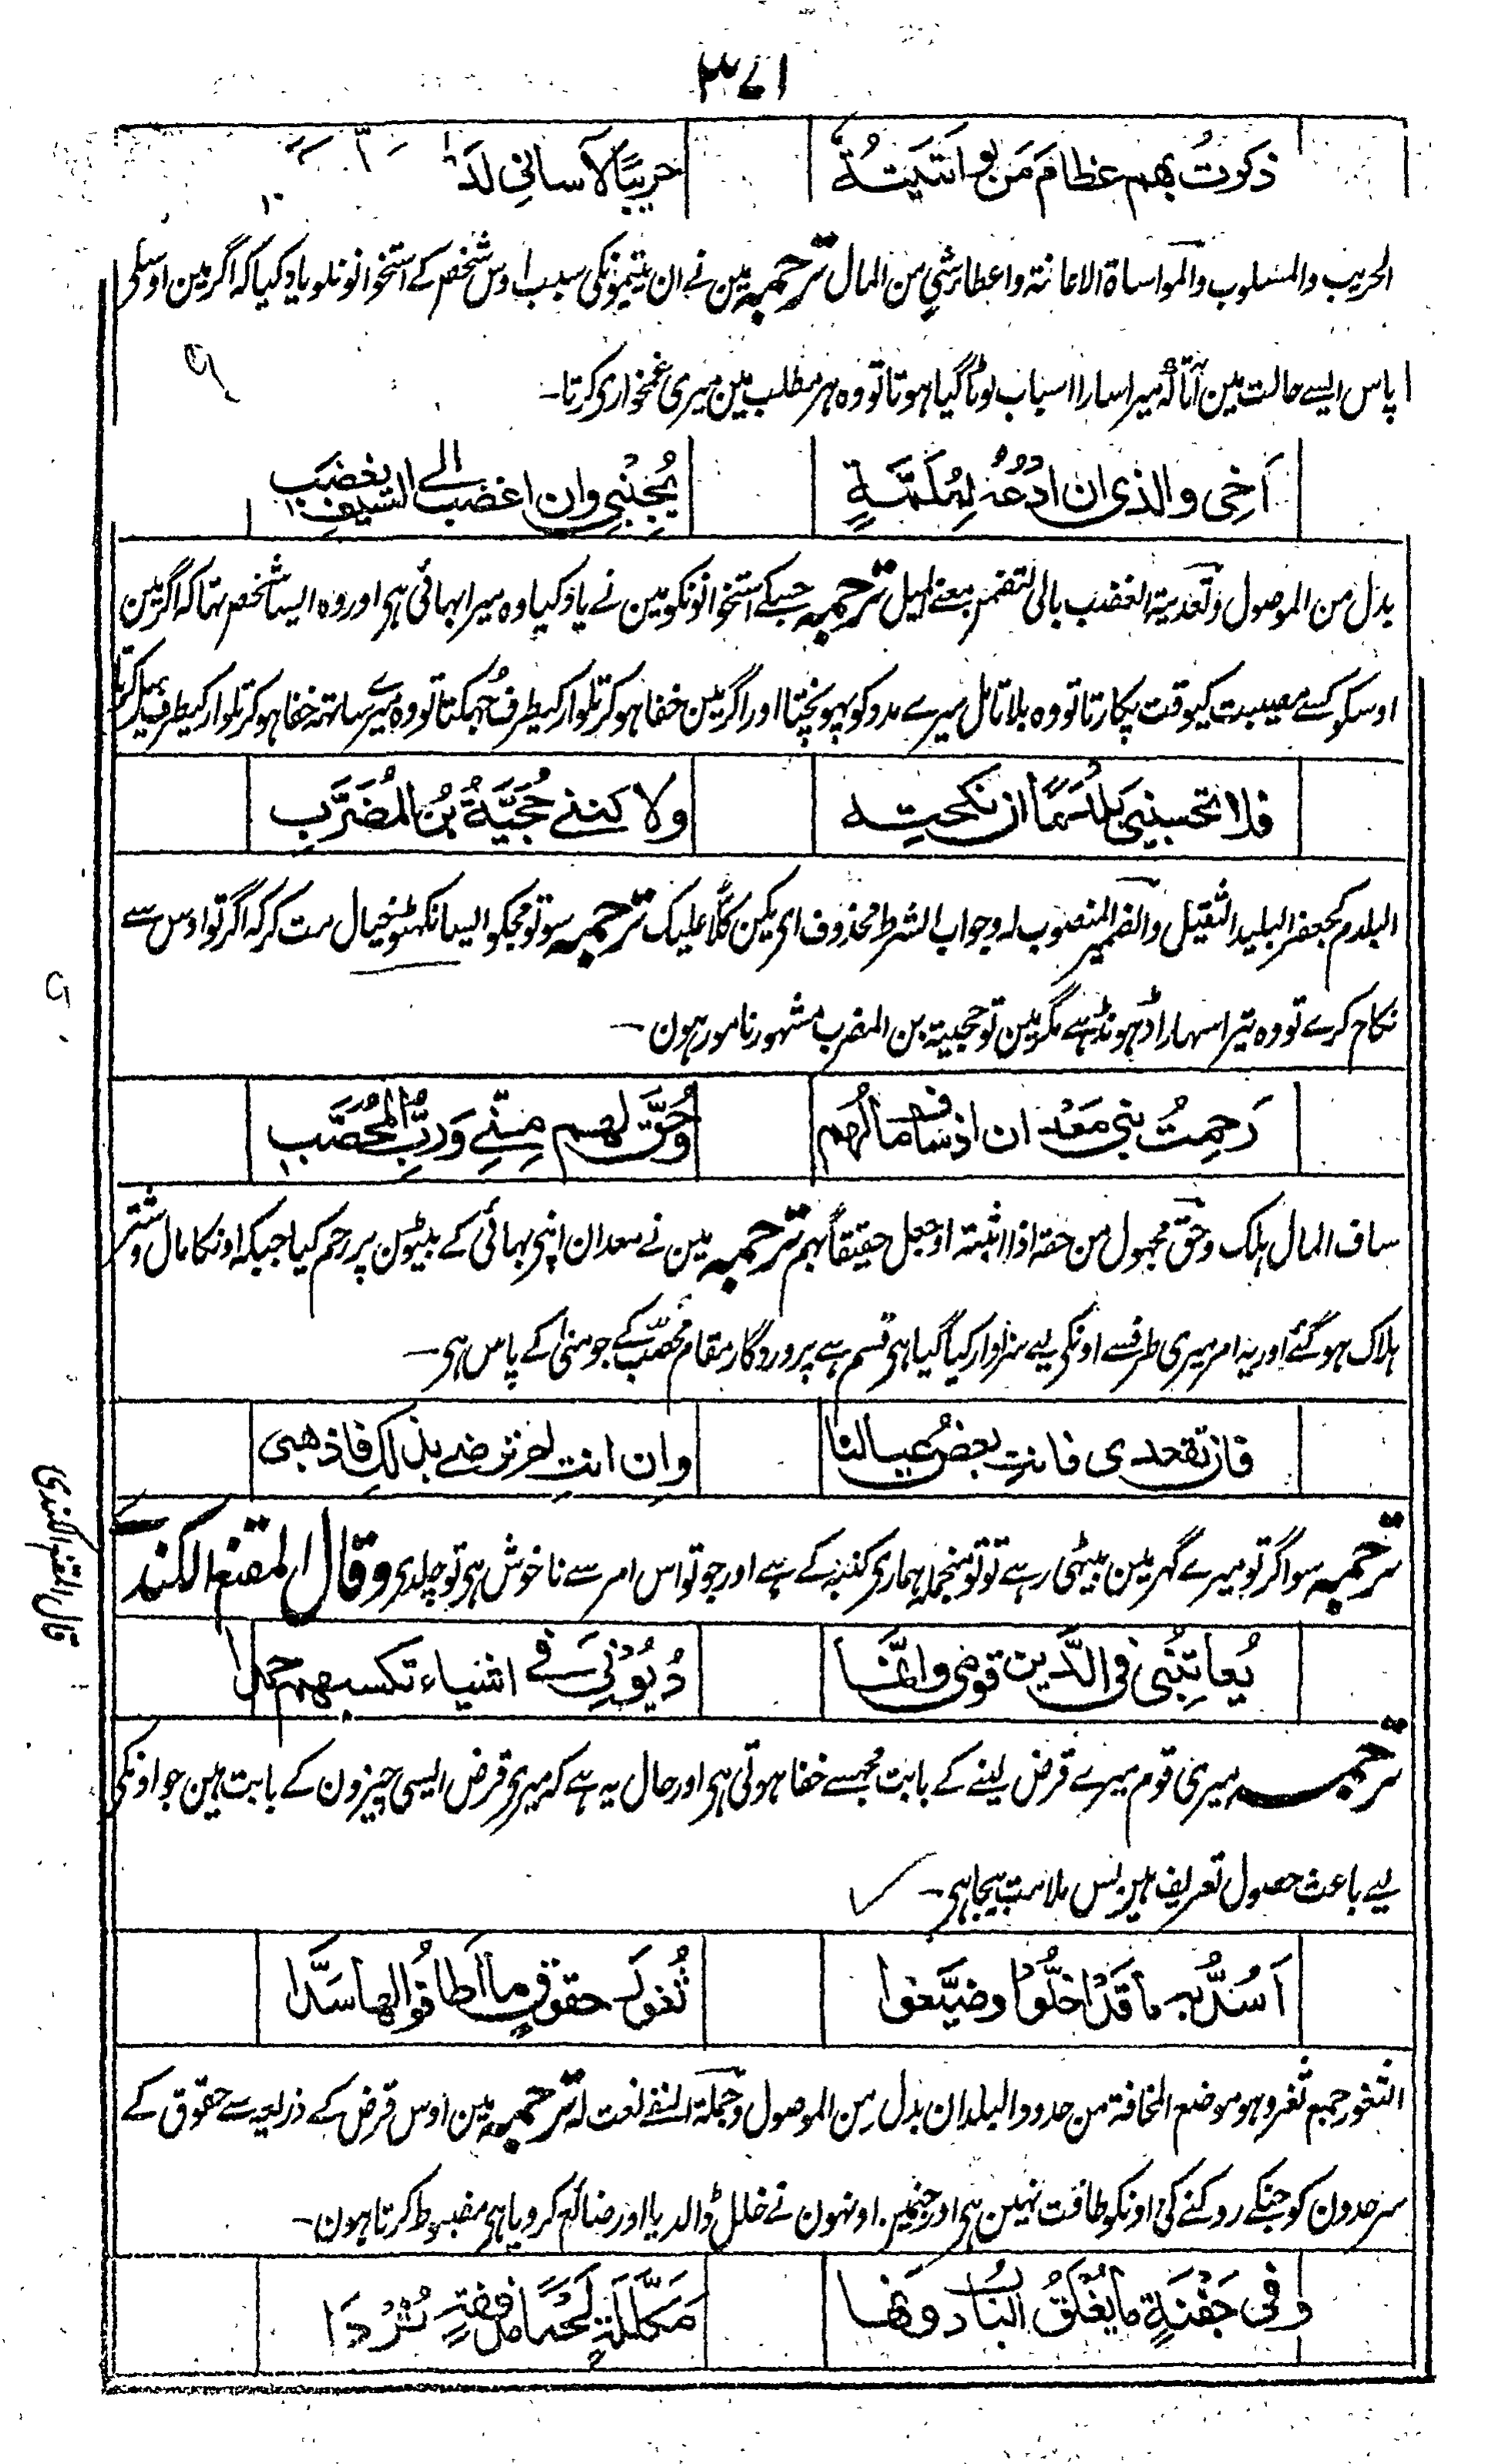 ٣٧١
ذكرتُ بهم عظامَ مَن لو اتيتُهُ حريبًا لآساني لدَ
الحريب والمسلوب والمواساة الاعانة واعطاء شي من المال ترجمہ مین نے ان یتیمونکی سبب اوس شخص کے استخوانونکو یاد کیا کہ اگر مین اوسکی
پاس ایسے حالت مین آتا کہ میرا سارا اسباب لوٹا گیا ہوتا تو وہ ہر مطلب مین میری غمخواری کرتا۔
اَخِی والذی ان ادعُهُ لِمُلِمَّةٍ يُجِبْنِی وان اغضب الے السيفِ يغضَبِ
بدل من الموصول وتعدیۃ الغضب بالی لتضمن معنے المیل ترجمہ جسکے استخوانونکو مین نے یاد کیا وہ میرا بہائی ہی اور وہ ایسا شخص تہا کہ اگر مین
اوسکو کسے مصیبت کیوقت پکارتا تو وہ بلا تامل میرے مدد کو پہونچتا اور اگر مین خفا ہو کر تلوار کیطرف جُہکتا تو وہ میرے ساتہہ خفا ہو کر تلوار کیطرف میل کرتا
فلا تحسبینی بلدمًا ان نكحتِه ولا كننے حُجَيَّةُ بنُ المُضَرَّبِ
البلدم کجعفر البلید الثقیل والضمیر المنصوب لہ وجواب الشرط محذوف ای یکن کلًّا علیک ترجمہ سو تو مجکو ایسا نکہٹو خیال مت کر کہ اگر تو اوس سے
نکاح کرے تو وہ تیرا سہارا ڈہونڈہے مگر مین تو حجیۃ بن المضرب مشہور نامور ہون۔
رَحِمتُ بنی مَعْدان اذ ساف مالُهم وحُقَّ لهم مِنّے وربِّ المُحَصَّبِ
ساف المال ہلک وحُقّ مجہول من حقہ اذا اثبتہ او جعل حقیقًا بہم ترجمہ مین نے معدان اپنی بہائی کے بیٹوں پر رحم کیا جبکہ اونکا مال و شتر
ہلاک ہو گئے اور یہ امر میری طرفسے اونکی لیے سزاوار کیا گیا ہی قسم ہے پروردگار مقام محصّب کے جو منیٰ کے پاس ہی۔
فان تقعدی فانتِ بعضُ عیالنا وان انتِ لم ترضے بذلكِ فاذهبی
ترجمہ سو اگر تو میرے گہر مین بیٹہی رہے تو تو منجملہ ہماری کنبہ کے ہے اور جو تو اس امر سے ناخوش ہی تو چلدی وقال المقنع الکندے
قال المقنع الکندی
يُعاتِبُنی فی الدَّین قومی وانّما دُيُوْنِیَ فے اشياء تكسبهم حمدا
ترجمہ میری قوم میرے قرض لینے کے بابت مجہسے خفا ہوتی ہی اور حال یہ ہے کہ میری قرض ایسی چیزون کے بابت ہین جو اونکی
لیے باعث حصول تعریف ہین بس ملامت بیجا ہی۔
اَسُدُّ بہ ما قَدْ اخلُّوا وضيَّعوا ثُغورَ حقوقٍ ما اَطاقُوا لها سَدّا
الثغور جمع ثغر وہو موضع المخافۃ من حدود البلدان بدل من الموصول وجملۃ النفے نعت لہ ترجمہ مین اوس قرض کے ذریعہ سے حقوق کے
سرحدون کو جنکے روکنے کی اونکو طاقت نہین ہی اور جنمین اونہون نے خلل ڈالدیا اور ضائع کر دیا ہی مضبوط کرتا ہون۔
وفی جَفْنَةٍ ما يُغلَقُ البابُ دونها مُكلَّلَةٍ لَحْمًا مدفقةٍ ثُرْدَا